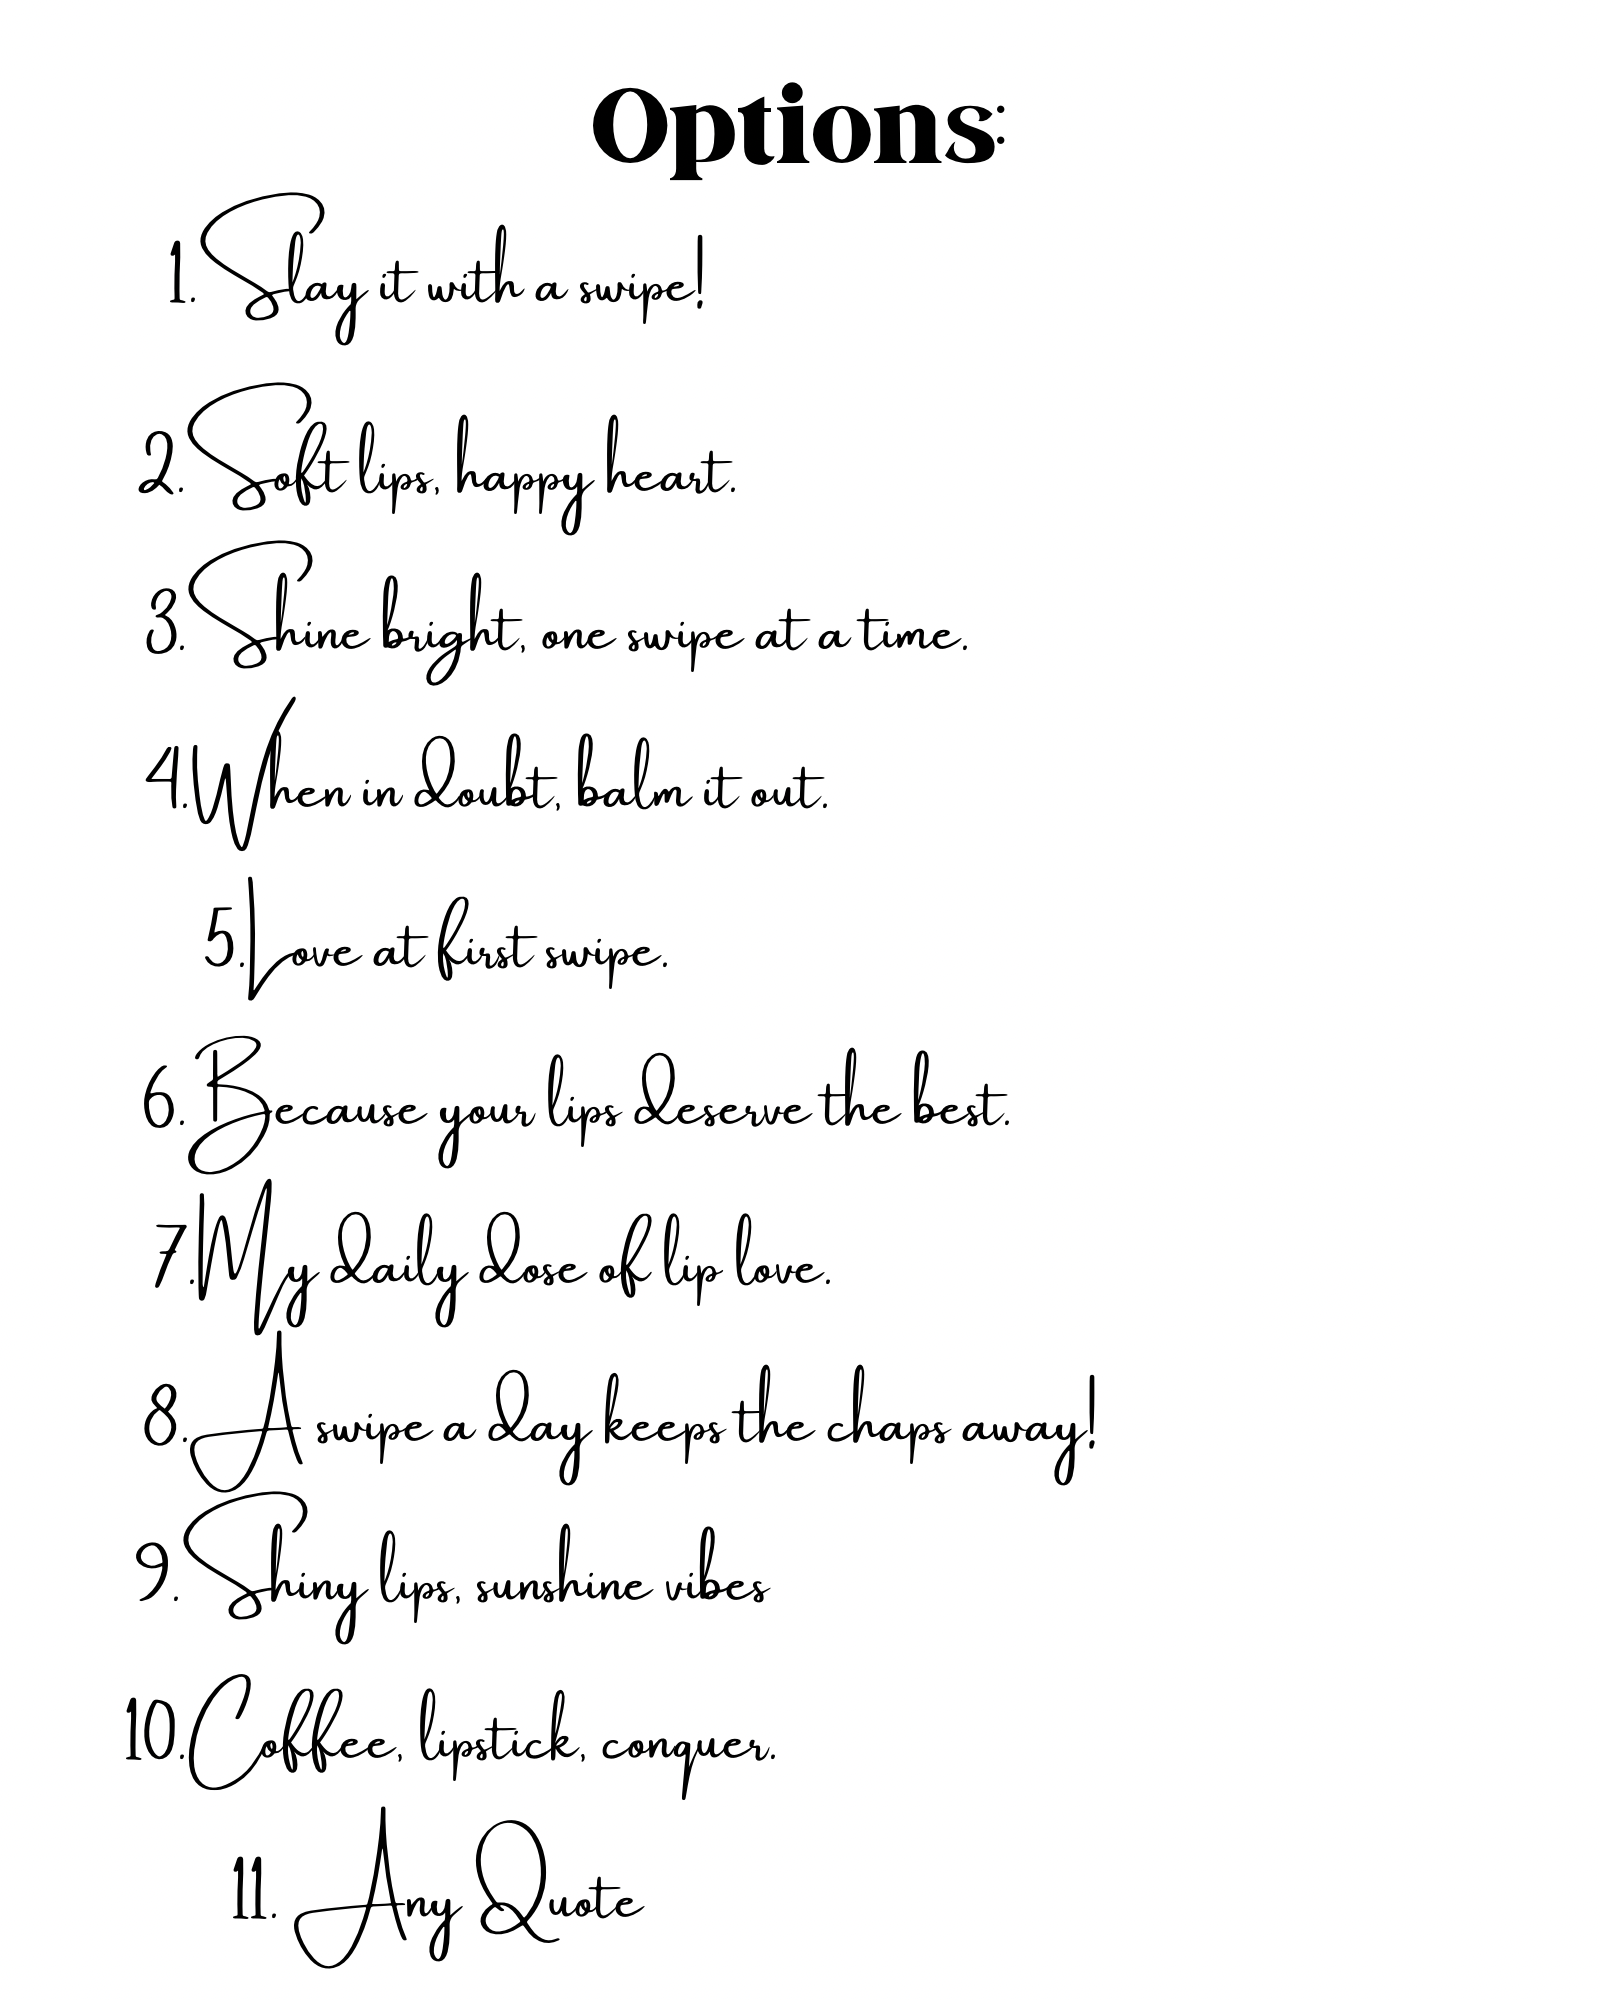 Options:
1. Slay it with a swipe!
2. Soft lips, happy heart.
3. Shine bright, one swipe at a time.
4. When in doubt, balm it out.
5. Love at first swipe.
6. Because your lips deserve the best.
7. My daily dose of lip love.
8. A swipe a day keeps the chaps away!
9. Shiny lips, sunshine vibes
10. Coffee, lipstick, conquer.
11. Any Quote